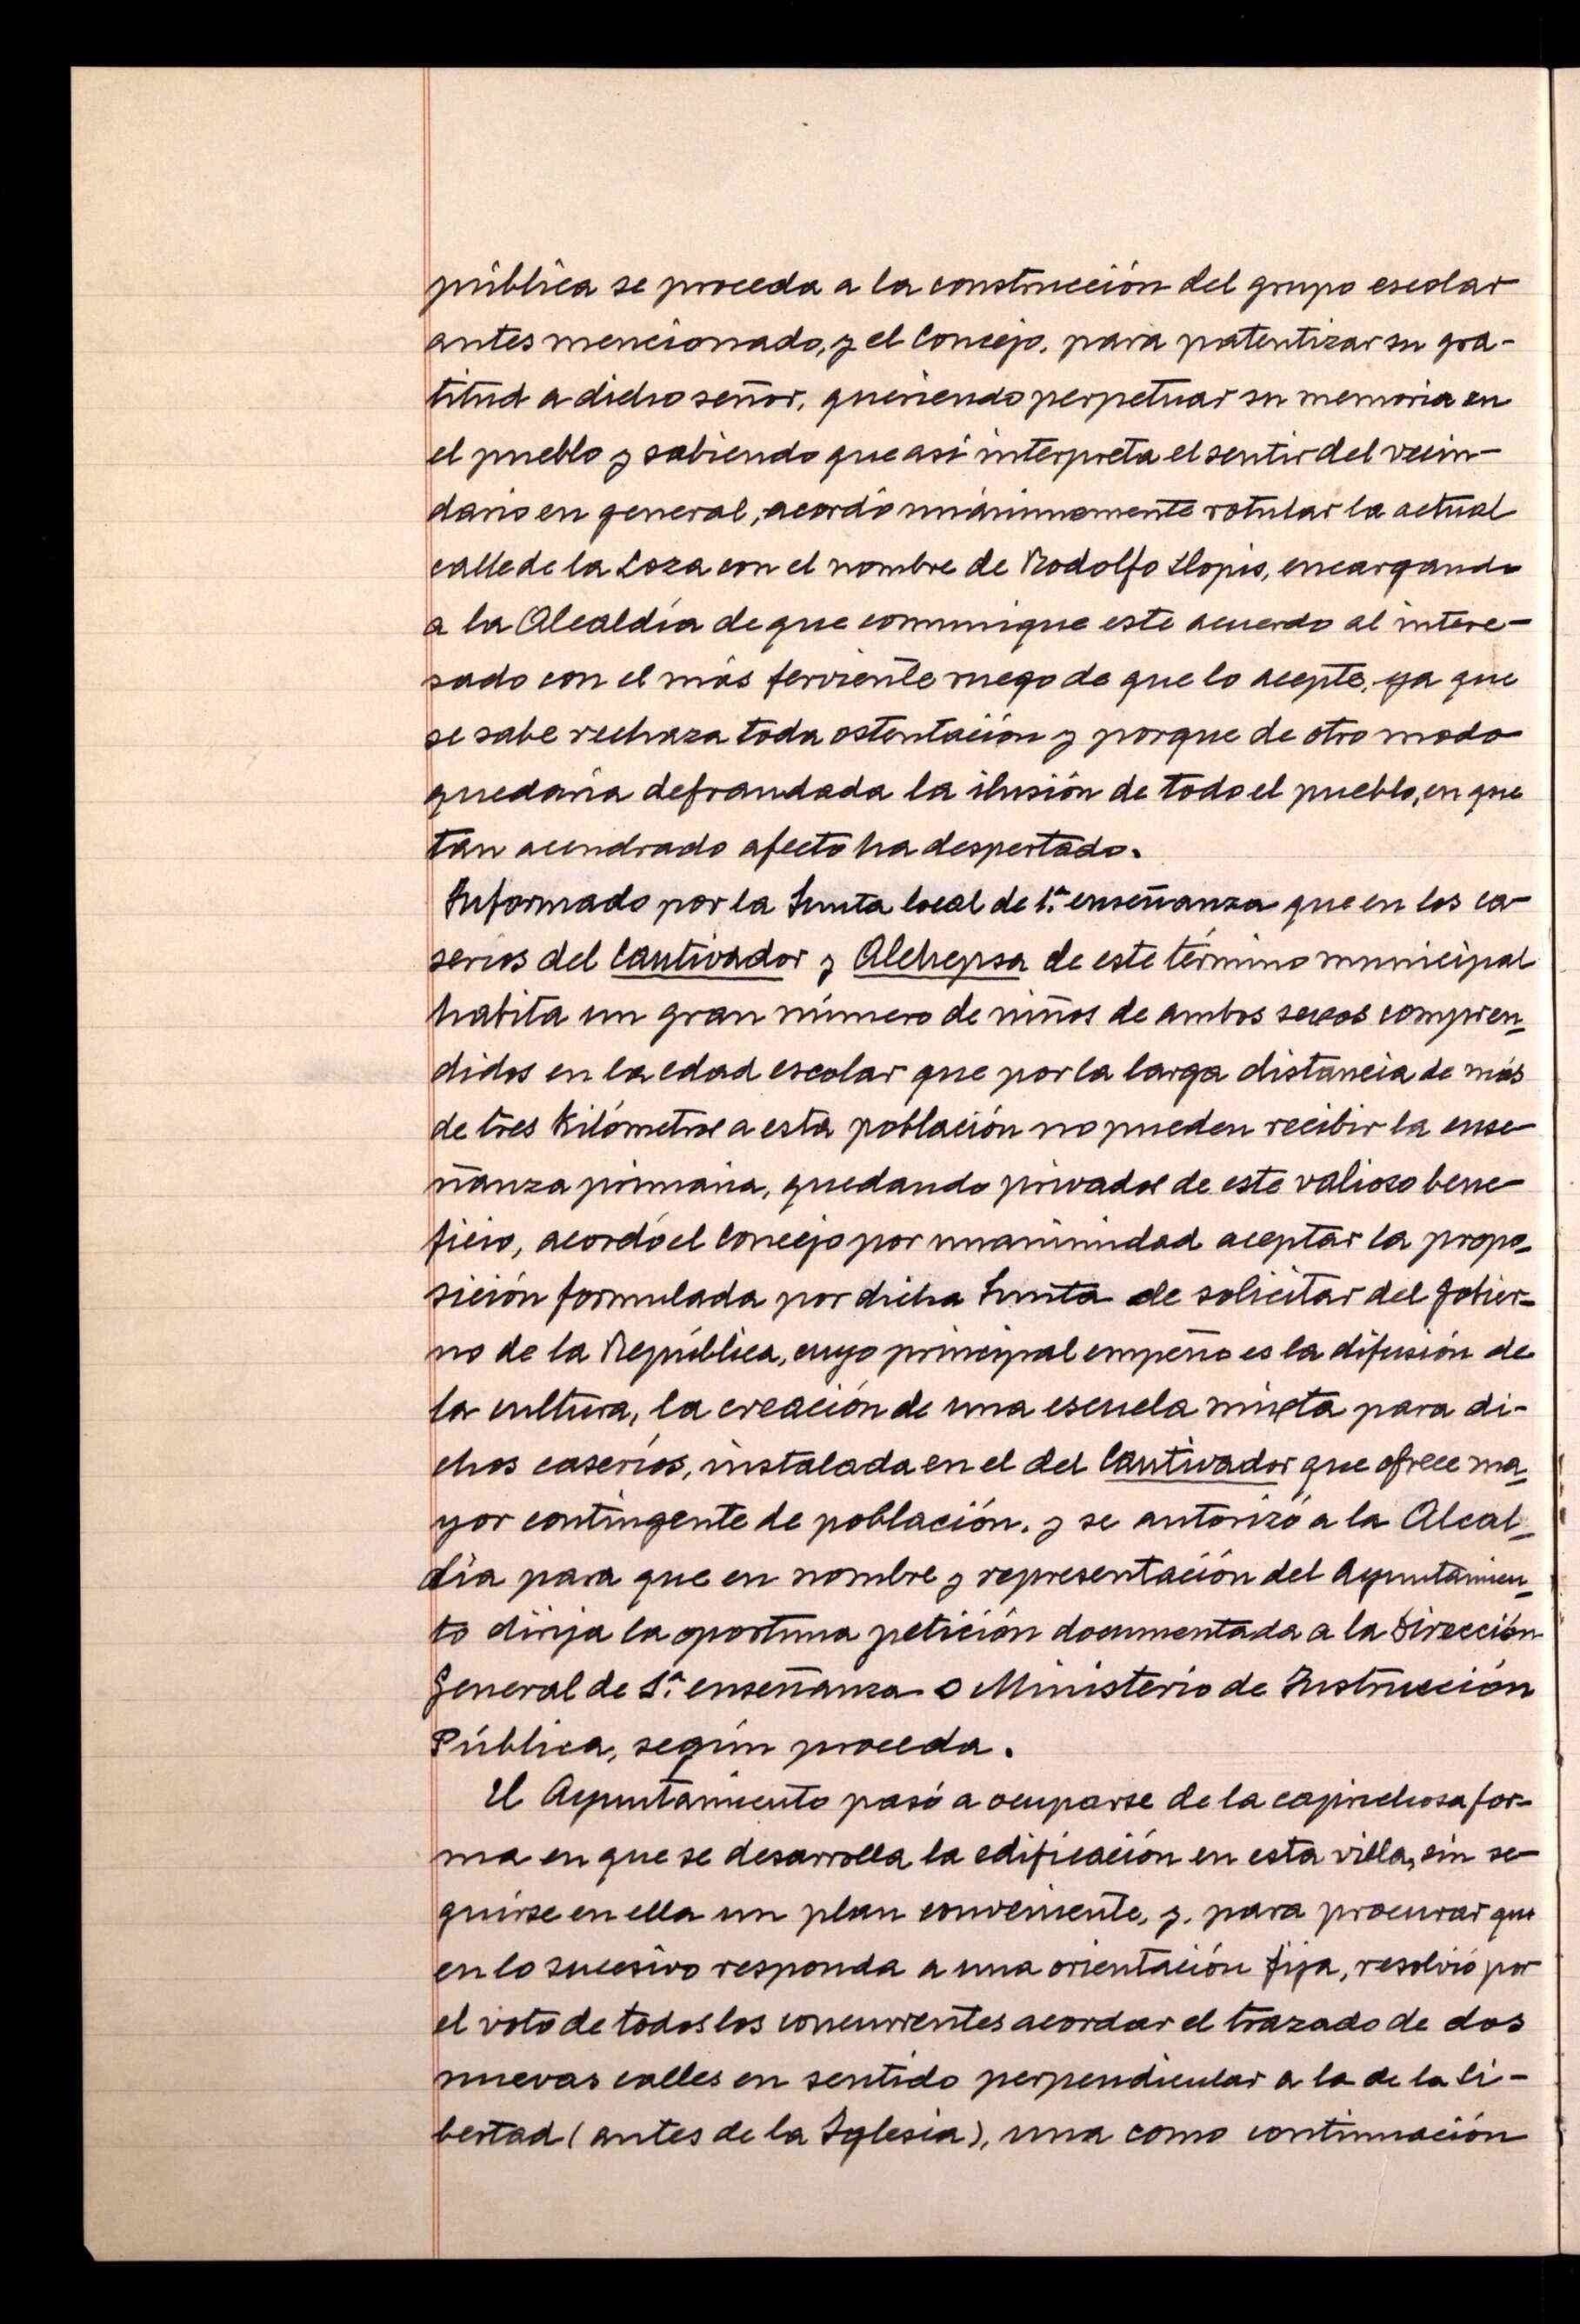 pública se proceda a la construcción del grupo escolar
antes mencionado, y el Concejo, para patentizar su gra-
titud a dicho señor, queriendo perpetuar su memoria en
el pueblo y sabiendo que así interpreta el sentir del vecin-
dario en general, acordó unánimemente rotular la actual
calle de la Loza con el nombre de Rodolfo Llopis, encargando
a la Alcaldía de que comunique este acuerdo al intere-
sado con el más ferviente ruego de que lo acepte, ya que
se sabe rechaza toda ostentación y porque de otro modo
quedaría defraudada la ilusión de todo el pueblo, en que
tan acendrado afecto ha despertado.
Informado por la Junta local de 1.ª enseñanza que en los ca-
seríos del Cautivador y Alchepsa de este término municipal
habita un gran número de niños de ambos sexos compren-
didos en la edad escolar que por la larga distancia de más
de tres kilómetros a esta población no pueden recibir la ense-
ñanza primaria, quedando privados de este valioso bene-
ficio, acordó el Concejo por unanimidad aceptar la propo-
sición formulada por dicha Junta de solicitar del Gobier-
no de la República, cuyo principal empeño es la difusión de
la cultura, la creación de una escuela mixta para di-
chos caseríos, instalada en el del Cautivador que ofrece ma-
yor contingente de población, y se autorizó a la Alcal-
día para que en nombre y representación del Ayuntamien-
to dirija la oportuna petición documentada a la Dirección
General de 1.ª enseñanza o Ministerio de Instrucción
Pública, según proceda.
El Ayuntamiento pasó a ocuparse de la caprichosa for-
ma en que se desarrolla la edificación en esta villa, sin se-
guirse en ella un plan conveniente, y, para procurar que
en lo sucesivo responda a una orientación fija, resolvió por
el voto de todos los concurrentes acordar el trazado de dos
nuevas calles en sentido perpendicular a la de la Li-
bertad (antes de la Iglesia), una como continuación